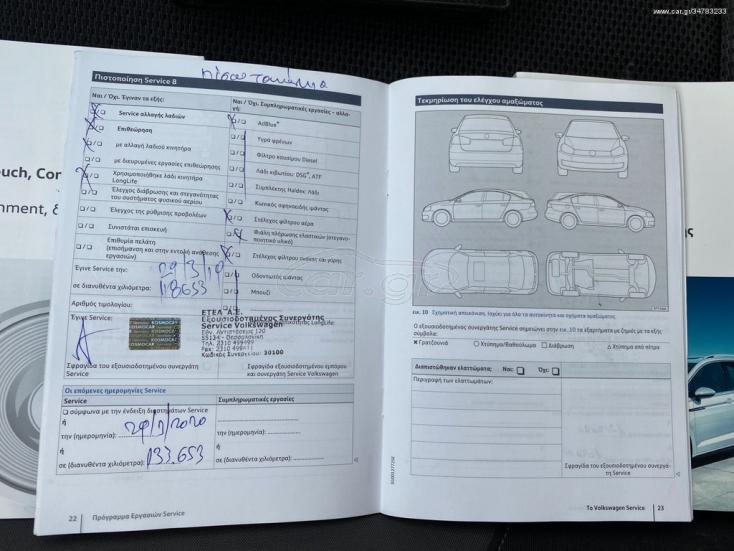 www.car.gr/34783233
Πιστοποίηση Service 8
Ναι / Όχι. Έγιναν τα εξής:
Service αλλαγής λαδιών
Επιθεώρηση
με αλλαγή λαδιού κινητήρα
με διευρυμένες εργασίες επιθεώρησης
Χρησιμοποιήθηκε λάδι κινητήρα
LongLife
Έλεγχος διάβρωσης και στεγανότητα
του συστήματος φυσικού αερίου
Έλεγχος της ρύθμισης προβολέων
Συνιστάται επισκευή
Επιθυμία πελάτη
(επισήμανση και στην εντολή ανάθεσης
εργασιών)
Έγινε Service την:
29/3/19
σε διανυθέντα χιλιόμετρα:
118653
Αριθμός τιμολογίου:
Έγινε Service:
Ναι / Όχι. Συμπληρωματικές εργασίες – αλλα-
γή:
AdBlue®
Υγρά φρένων
Φίλτρο καυσίμου Diesel
Λάδι κιβωτίου: DSG®, ATF
Συμπλέκτης Haldex: Λάδι
Κωνικός σφηνοειδής ιμάντας
Στέλεχος φίλτρου αέρα
Φιάλη πλήρωσης ελαστικών (στεγανο-
ποιητικό υλικό)
Στέλεχος φίλτρου σκόνης και γύρης
Οδοντωτός ιμάντας
Μπουζί
KOSMOCAR
ΕΤΕΛ Α.Ε.
Εξουσιοδοτημένος Συνεργάτης
Service Volkswagen
55134 - Θεσσαλονίκη
Τηλ. 2310 499499
Κωδικός Συνεργείου: 30100
Σφραγίδα του εξουσιοδοτημένου συνεργάτη
Service
Σφραγίδα του εξουσιοδοτημένου εμπόρου
και συνεργάτη Service Volkswagen
Οι επόμενες ημερομηνίες Service
Service
Συμπληρωματικές εργασίες
σύμφωνα με την ένδειξη διαστημάτων Service
ή
την (ημερομηνία):
ή
σε (διανυθέντα χιλιόμετρα): 133.653
την (ημερομηνία):
ή
σε (διανυθέντα χιλιόμετρα):
22 Πρόγραμμα Εργασιών Service
Τεκμηρίωση του ελέγχου αμαξώματος
εικ. 10 Σχηματική απεικόνιση. Ισχύει για όλα τα αυτοκίνητα και οχήματα αμαξώματος.
Ο εξουσιοδοτημένος συνεργάτης Service σημειώνει στην εικ. 10 τα εξαρτήματα με ζημιές με τα εξής
σύμβολα:
× Γρατζουνιά ○ Χτύπημα/Βαθούλωμα □ Διάβρωση △ Χτύπημα από πέτρα
Διαπιστώθηκαν ελαττώματα: Ναι: Όχι:
Περιγραφή των ελαττωμάτων:
Σφραγίδα του εξουσιοδοτημένου συνεργά-
τη Service
Το Volkswagen Service 23
ouch, Con
nment, &